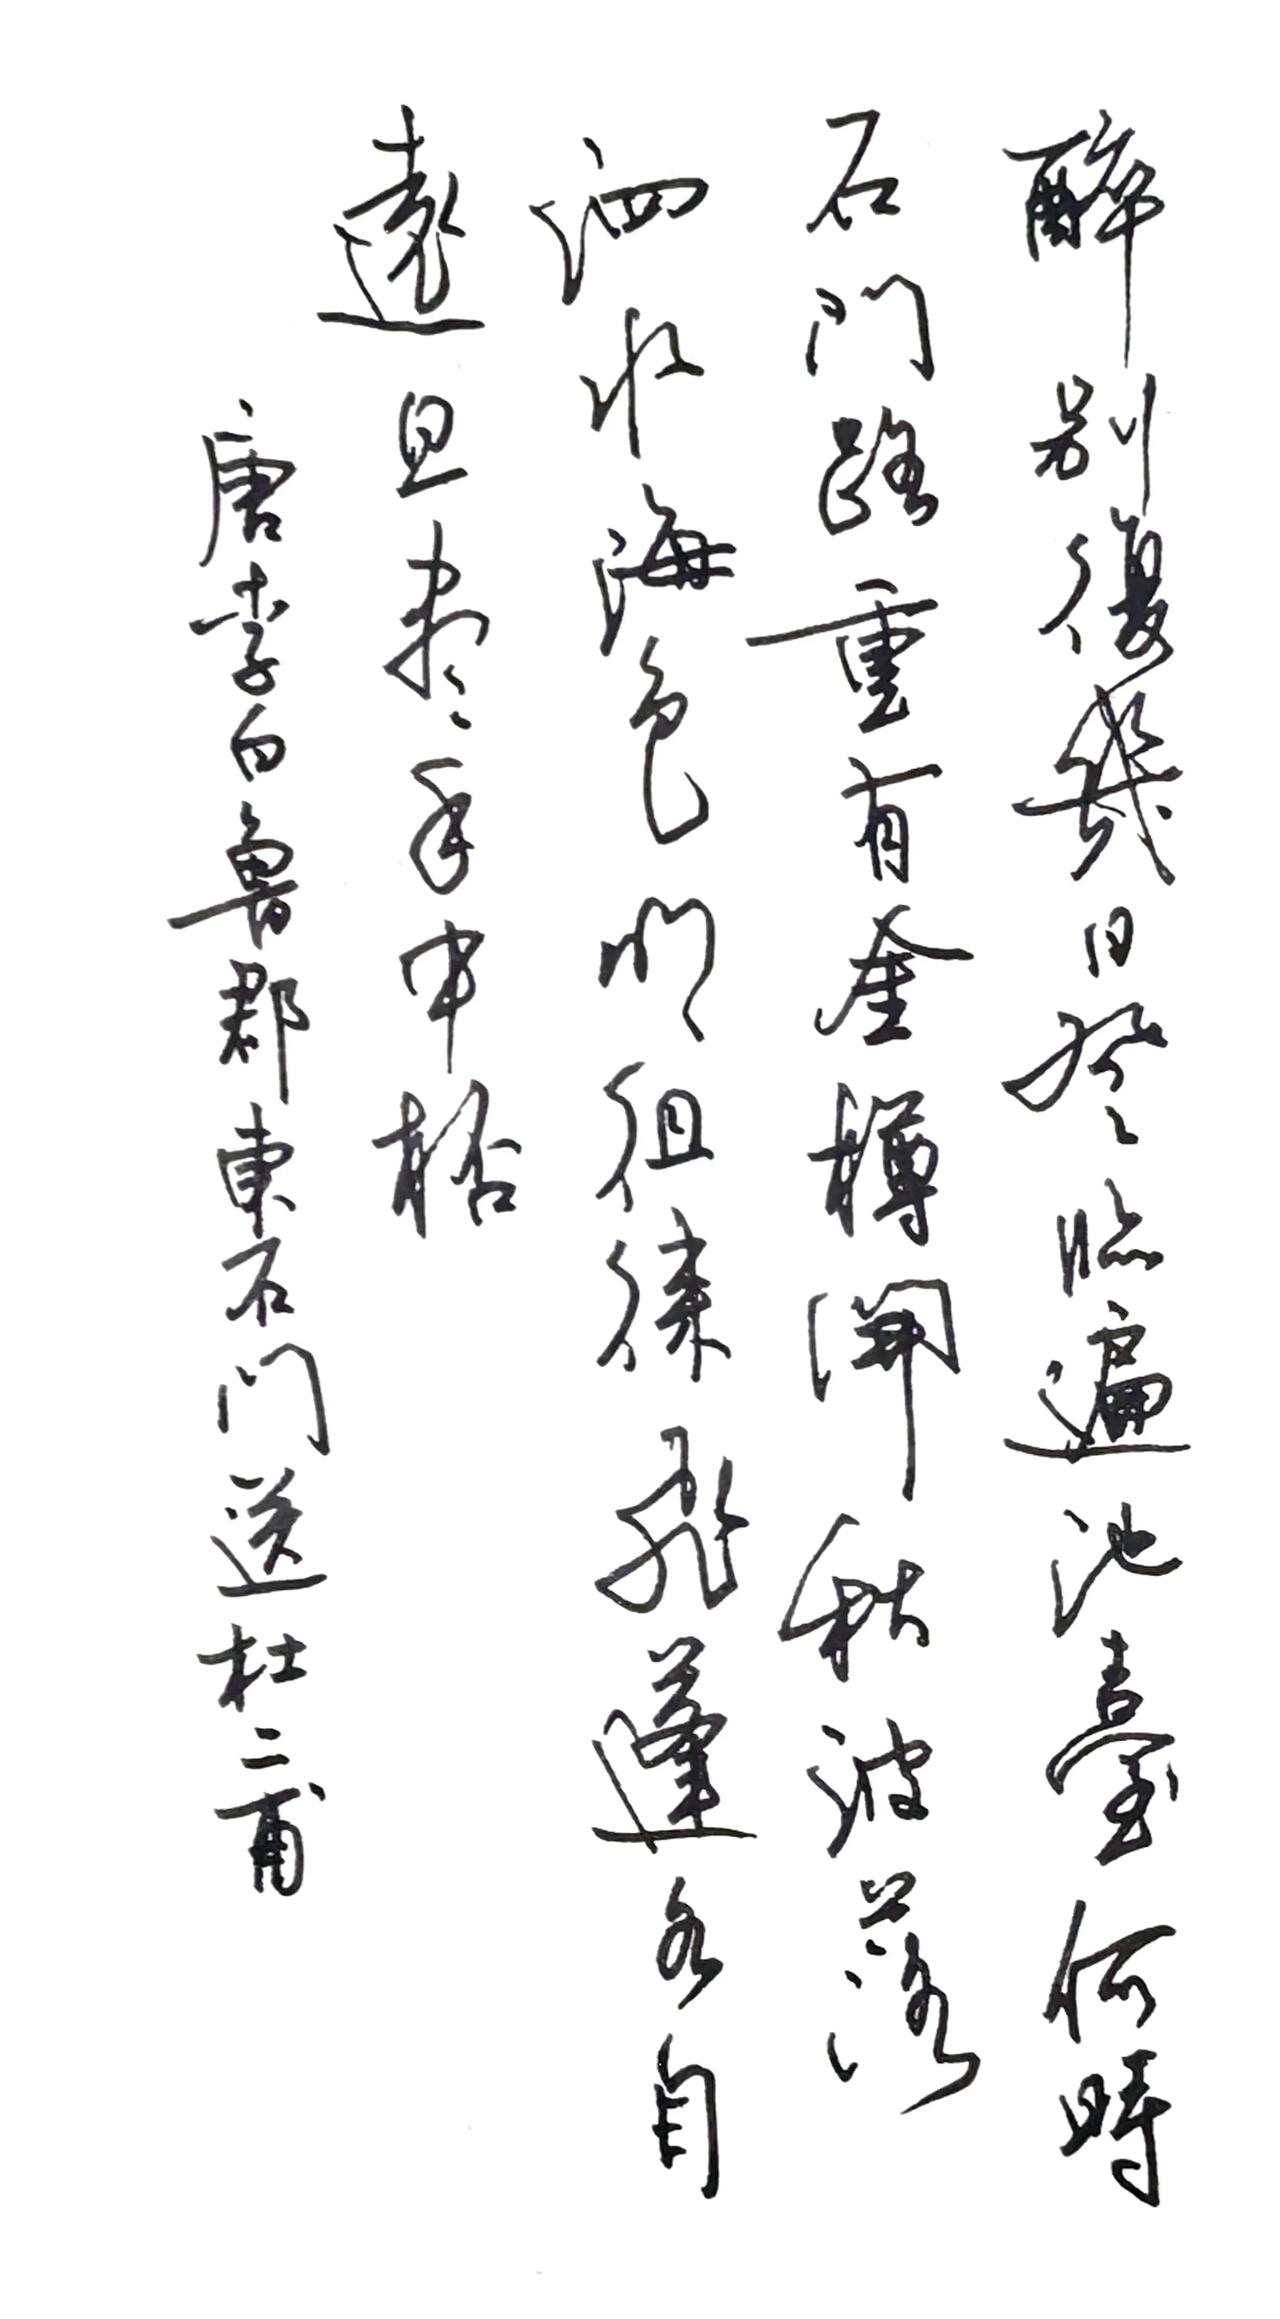 醉別復幾日登臨遍池臺何時
石門路重有金樽開秋波落
泗水海色明徂徠飛蓬各自
遠且盡手中桮
唐李白魯郡東石門送杜二甫